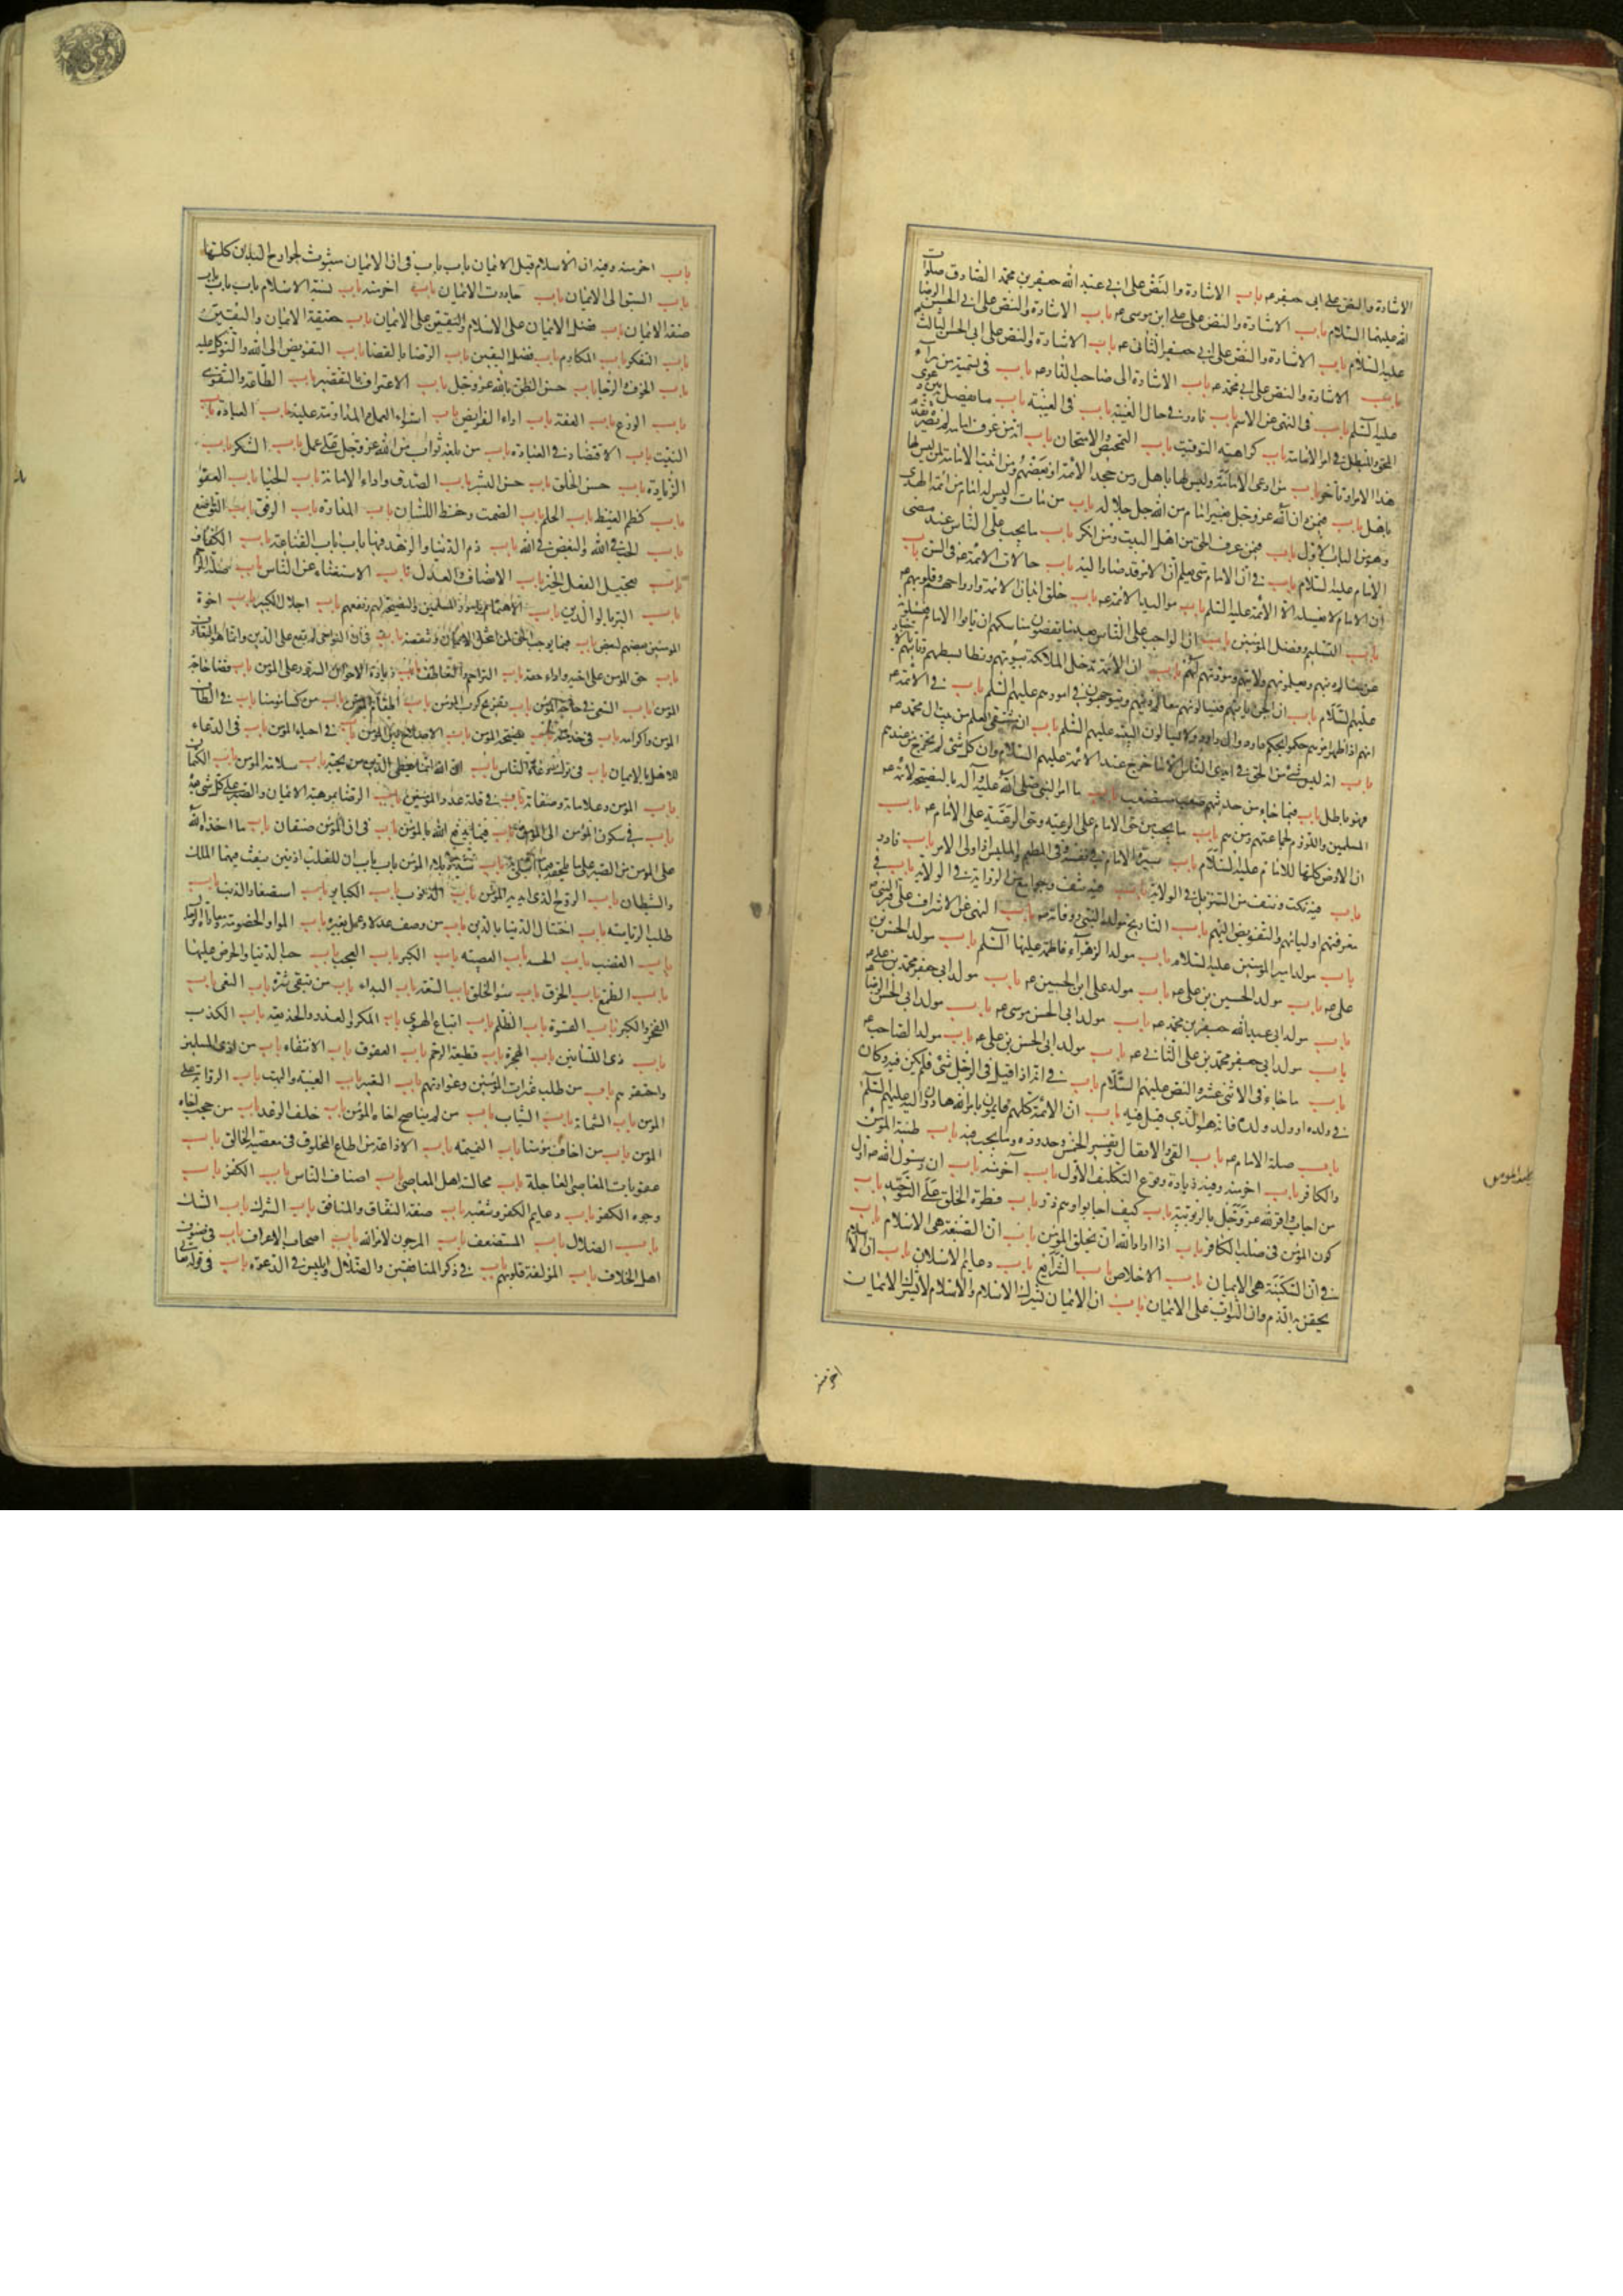 الاشارة والنص على ابى جعفر عه باب الاشارة والنص على ابى عبد الله جعفر بن محمد الصادق صلوات
الله عليهما السلام باب الاشارة والنص على على ابن موسى عه باب الاشارة والنص على ابى الحسن الرضا
عليه السلام باب الاشارة والنص على ابى جعفر الثانى عه باب الاشارة والنص على ابى الحسن الثالث
باب الاشارة والنص على ابى محمد عه باب الاشارة الى صاحب الدار عه باب فى تسمية من رآه
عليه السلم باب فى النهى عن الاسم باب نادر فى حال الغيبة باب فى الغيبة باب ما يفصل به بين دعوى
المحق والمبطل فى امر الامامة باب كراهية التوقيت باب التمحيص والامتحان باب انه من عرف امامه لم يضره
هذا الامر او تأخر باب من ادعى الامامة وليس لها باهل ومن جحد الائمة او بعضهم ومن اثبت الامامة لمن ليس لها
باهل باب فيمن دان الله عز وجل بغير امام من الله جل جلاله باب من مات وليس له امام من ائمة الهدى
وهو من الباب الاول باب فيمن عرف الحق من اهل البيت ومن انكر باب ما يجب على الناس عند مضى
الامام عليه السلام باب فى ان الامام متى يعلم ان الامر قد صار اليه باب حالات الائمة عه فى السن باب
ان الامام لا يغسله الا الائمة عليه السلم باب مواليد الائمة عه باب خلق ابدان الائمة وارواحهم وقلوبهم عه
باب التسليم وفضل المؤمنين باب ان الواجب على الناس بعد ما يقضون مناسكهم ان ياتوا الامام فيسئلونه
عن معالم دينهم ويعلمونهم ولايتهم ومودتهم لهم باب ان الائمة تدخل الملائكة بيوتهم وتطا بسطهم وتاتيهم بالاخبار
عليهم السلام باب ان الجن ياتيهم فيسالونهم معالم دينهم ويتوجهون فى امورهم عليهم السلم باب فى الائمة عه
انهم اذا ظهر امرهم حكموا بحكم داود وال داود ولا يسالون البينة عليهم السلم باب ان مستقى العلم من بيت ال محمد عه
باب انه ليس شئ من الحق فى ايدى الناس الا ما خرج من عند الائمة عليهم السلام وان كل شئ لم يخرج من عندهم
فهو باطل باب فيما جاء من حديثهم صعب مستصعب باب ما امر النبى صلى الله عليه وآله بالنصيحة لائمة
المسلمين واللزوم لجماعتهم ومن هم باب ما يجب من حق الامام على الرعية وحق الرعية على الامام عه باب
ان الارض كلها للامام عليه السلام باب سيرة الامام فى نفسه وفى المطعم والملبس اذا ولى الامر باب نادر
باب فيه نكت ونتف من التنزيل فى الولاية باب فيه نتف وجوامع من الرواية فى الولاية باب فى
معرفتهم اوليائهم والتفويض اليهم باب التاريخ مولد النبى ووفاته باب النهى عن الاشراف على قبر النبى
باب مولد امير المؤمنين عليه السلام باب مولد الزهراء فاطمة عليها السلم باب مولد الحسن بن
على عه باب مولد الحسين بن على عه باب مولد على ابن الحسين عه باب مولد ابى جعفر محمد بن على عه
باب مولد ابى عبد الله جعفر بن محمد عه باب مولد ابى الحسن موسى عه باب مولد ابى الحسن الرضا
باب مولد ابى جعفر محمد بن على الثانى عه باب مولد ابى الحسن بن على عه باب مولد الصاحب عه
باب ما جاء فى الاثنى عشر والنص عليهم السلام باب فى انه اذا قيل فى الرجل شئ فلم يكن فيه وكان
فى ولده او ولد ولده فانه هو الذى قيل فيه باب ان الائمة كلهم قايمون بامر الله هادون اليه عليهم السلم
باب صلة الامام عه باب الفئ والانفال وتفسير الخمس وحدوده وما يجب فيه باب طينة المؤمن
والكافر باب اخر منه وفيه زيادة وقوع التكليف الاول باب آخر منه باب ان رسول الله صه اول
من اجاب واقر لله عز وجل بالربوبية باب كيف اجابوا وهم ذر باب فطرة الخلق على التوحيد باب
كون المؤمن فى صلب الكافر باب اذا اراد الله ان يخلق المؤمن باب ان الصبغة هى الاسلام باب
فى ان السكينة هى الايمان باب الاخلاص باب الشرايع باب دعايم الاسلام باب ان الاسلام
يحقن به الدم وان الثواب على الايمان باب ان الايمان يشرك الاسلام والاسلام لا يشرك الايمان
اخر منه
باب اخر منه وفيه ان الاسلام قبل الايمان باب باب فى ان الايمان مبثوث لجوارح البدن كلها
باب السبق الى الايمان باب درجات الايمان باب اخر منه باب نسبة الاسلام باب باب
صفة الايمان باب فضل الايمان على الاسلام واليقين على الايمان باب حقيقة الايمان واليقين
باب التفكر باب المكارم باب فضل اليقين باب الرضا بالقضا باب التفويض الى الله والتوكل عليه
باب الخوف والرجا باب حسن الظن بالله عز وجل باب الاعتراف بالتقصير باب الطاعة والتقوى
باب الورع باب العفة باب اداء الفرايض باب استواء العمل والمداومة عليه باب العبادة باب
النية باب الاقتصاد فى العبادة باب من بلغه ثواب من الله عز وجل على عمل باب الشكر باب
الزيادة باب حسن الخلق باب حسن البشر باب الصدق واداء الامانة باب الحيا باب العفو
باب كظم الغيظ باب الحلم باب الصمت وحفظ اللسان باب المداراة باب الرفق باب التواضع
باب الحب فى الله والبغض فى الله باب ذم الدنيا والزهد فيها باب باب القناعة باب الكفاف
باب تعجيل الفعل الخير باب الانصاف والعدل باب الاستغناء عن الناس باب صلة الرحم
باب البر بالوالدين باب الاهتمام بامور المسلمين والنصيحة لهم ونفعهم باب اجلال الكبير باب اخوة
المؤمنين بعضهم لبعض باب فيما يوجب الحق لمن انتحل الايمان وينقضه باب فى ان التواخى لم يقع على الدين وانما هو التعارف
باب حق المؤمن على اخيه واداء حقه باب التراحم والتعاطف باب زيارة الاخوان السرور على المؤمن باب قضا حاجة
المؤمن باب السعى فى حاجة المؤمن باب تفريج كرب المؤمن باب اطعام المؤمن باب من كسا مؤمنا باب فى الطاف
المؤمن واكرامه باب فى خدمته باب نصيحة المؤمن باب الاصلاح بين المؤمن باب فى احياء المؤمن باب فى الدعاء
للاهل بالايمان باب فى ترك دعاء الناس باب ان الله انما يعطى الدين من يحبه باب سلامة المؤمن باب الكتمان
باب المؤمن وعلاماته وصفاته باب فى قلة عدد المؤمنين باب الرضا بموهبة الايمان والصبر على كل شئ بعده
باب فى سكون المؤمن الى المؤمن باب فيما يدفع الله بالمؤمن باب فى ان المؤمن صنفان باب ما اخذه الله
على المؤمن من الصبر على ما يلحقه فيما ابتلى به باب شدة بلاء المؤمن باب باب ان للقلب اذنين ينفث فيهما الملك
والشيطان باب الروح الذى ايد به المؤمن باب الذنوب باب الكباير باب استصغار الذنب باب
طلب الرياسة باب اختتال الدنيا بالدين باب من وصف عدلا وعمل بغيره باب المراء والخصومة ومعاداة الرجال
باب الغضب باب الحسد باب العصبية باب الكبر باب العجب باب حب الدنيا والحرص عليها
باب الطمع باب الخرق باب سوء الخلق باب السفه باب البذاء باب من يتقى شره باب البغى باب
الفخر والكبر باب القسوة باب الظلم باب اتباع الهوى باب المكر والغدر والخديعة باب الكذب
باب ذى اللسانين باب الهجرة باب قطيعة الرحم باب العقوق باب الانتفاء باب من اذى المسلمين
واحتقرهم باب من طلب عثرات المؤمنين وعوراتهم باب التعيير باب الغيبة والبهت باب الرواية على
المؤمن باب الشماتة باب السباب باب من لم يناصح اخاه المؤمن باب خلف الوعد باب من حجب اخاه
المؤمن باب من اخاف مؤمنا باب النميمة باب الاذاعة من اطاع المخلوق فى معصية الخالق باب
عقوبات المعاصى العاجلة باب مجالسة اهل المعاصى باب اصناف الناس باب الكفر باب
وجوه الكفر باب دعايم الكفر وشعبه باب صفة النفاق والمنافق باب الشرك باب الشك
باب الضلال باب المستضعف باب المرجون لامر الله باب اصحاب الاعراف باب فى صنوف
اهل الخلاف باب المؤلفة قلوبهم باب فى ذكر المنافقين والضلال وابليس فى الدعوة باب فى قوله تعالى